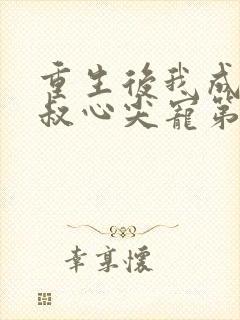 重生後我成
叔心尖寵第
幸享懷